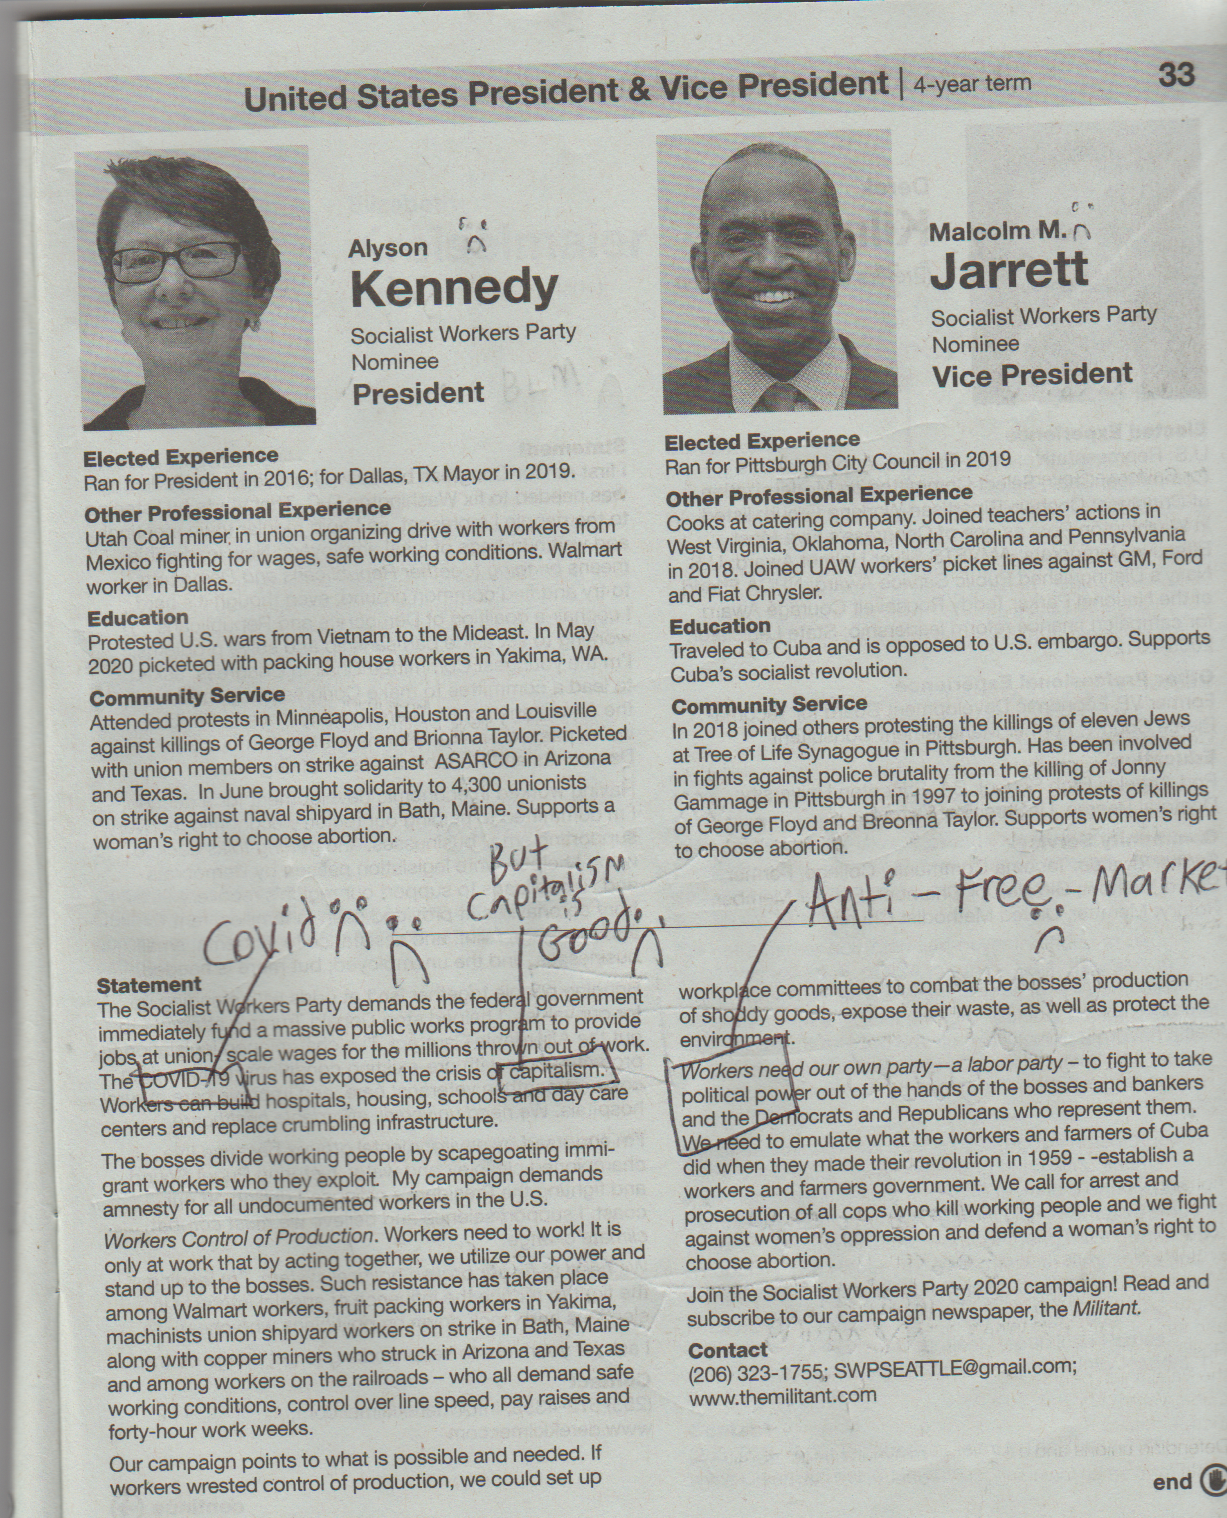 United States President & Vice President | 4-year term
33
Alyson
Kennedy
Socialist Workers Party
Nominee
President
Elected Experience
Ran for President in 2016; for Dallas, TX Mayor in 2019.
Other Professional Experience
Utah Coal miner, in union organizing drive with workers from
Mexico fighting for wages, safe working conditions. Walmart
worker in Dallas.
Education
Protested U.S. wars from Vietnam to the Mideast. In May
2020 picketed with packing house workers in Yakima, WA.
Community Service
Attended protests in Minneapolis, Houston and Louisville
against killings of George Floyd and Brionna Taylor. Picketed
with union members on strike against ASARCO in Arizona
and Texas. In June brought solidarity to 4,300 unionists
on strike against naval shipyard in Bath, Maine. Supports a
woman's right to choose abortion.
Malcolm M.
Jarrett
Socialist Workers Party
Nominee
Vice President
Elected Experience
Ran for Pittsburgh City Council in 2019
Other Professional Experience
Cooks at catering company. Joined teachers' actions in
West Virginia, Oklahoma, North Carolina and Pennsylvania
in 2018. Joined UAW workers' picket lines against GM, Ford
and Fiat Chrysler.
Education
Traveled to Cuba and is opposed to U.S. embargo. Supports
Cuba's socialist revolution.
Community Service
In 2018 joined others protesting the killings of eleven Jews
at Tree of Life Synagogue in Pittsburgh. Has been involved
in fights against police brutality from the killing of Jonny
Gammage in Pittsburgh in 1997 to joining protests of killings
of George Floyd and Breonna Taylor. Supports women's right
to choose abortion.
Covid
But
Capitalism
is
Good
Anti-Free-Market
Statement
The Socialist Workers Party demands the federal government
immediately fund a massive public works program to provide
jobs at union- scale wages for the millions thrown out of work.
The COVID-19 virus has exposed the crisis of capitalism.
Workers can build hospitals, housing, schools and day care
centers and replace crumbling infrastructure.
The bosses divide working people by scapegoating immi-
grant workers who they exploit. My campaign demands
amnesty for all undocumented workers in the U.S.
Workers Control of Production. Workers need to work! It is
only at work that by acting together, we utilize our power and
stand up to the bosses. Such resistance has taken place
among Walmart workers, fruit packing workers in Yakima,
machinists union shipyard workers on strike in Bath, Maine
along with copper miners who struck in Arizona and Texas
and among workers on the railroads – who all demand safe
working conditions, control over line speed, pay raises and
forty-hour work weeks.
Our campaign points to what is possible and needed. If
workers wrested control of production, we could set up
workplace committees to combat the bosses' production
of shoddy goods, expose their waste, as well as protect the
environment.
Workers need our own party—a labor party – to fight to take
political power out of the hands of the bosses and bankers
and the Democrats and Republicans who represent them.
We need to emulate what the workers and farmers of Cuba
did when they made their revolution in 1959 - -establish a
workers and farmers government. We call for arrest and
prosecution of all cops who kill working people and we fight
against women's oppression and defend a woman's right to
choose abortion.
Join the Socialist Workers Party 2020 campaign! Read and
subscribe to our campaign newspaper, the Militant.
Contact
(206) 323-1755; SWPSEATTLE@gmail.com;
www.themilitant.com
end